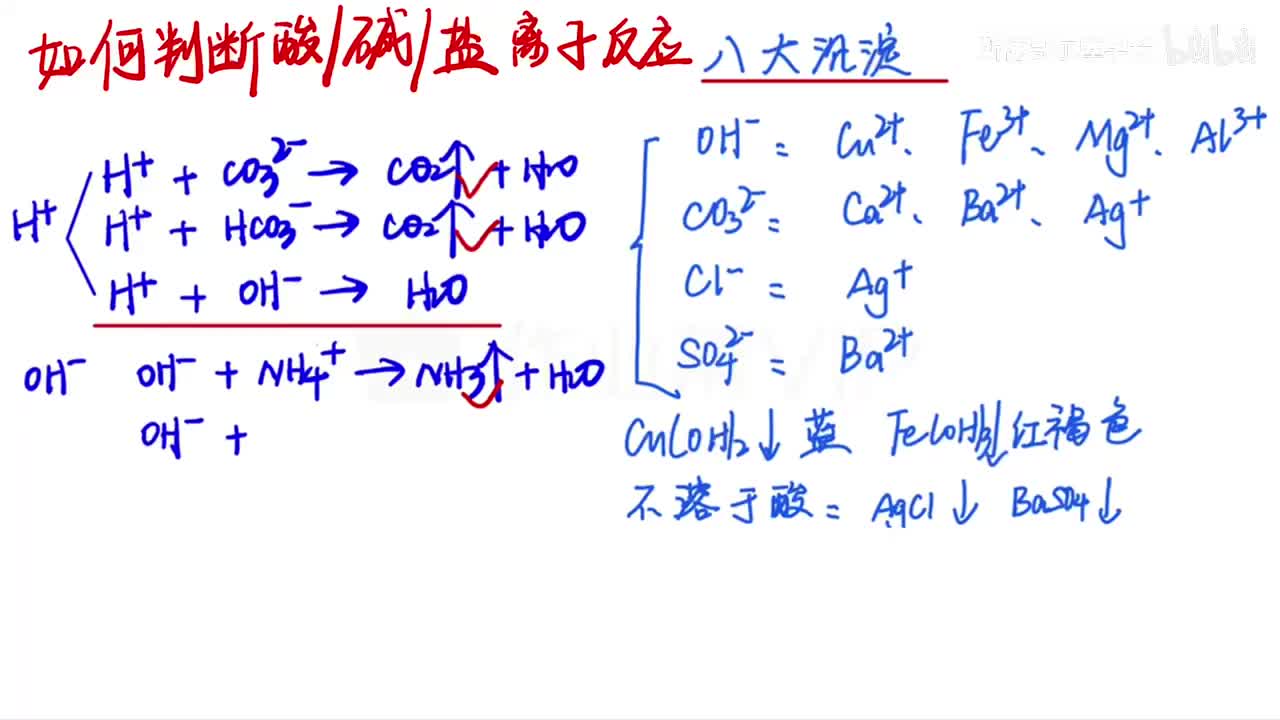 如何判断酸/碱/盐离子反应
八大沉淀
H⁺
H⁺ + CO₃²⁻ → CO₂↑ + H₂O
H⁺ + HCO₃⁻ → CO₂↑ + H₂O
H⁺ + OH⁻ → H₂O
OH⁻ OH⁻ + NH₄⁺ → NH₃↑ + H₂O
OH⁻ +
OH⁻ : Cu²⁺、Fe³⁺、Mg²⁺、Al³⁺
CO₃²⁻ : Ca²⁺、Ba²⁺、Ag⁺
Cl⁻ : Ag⁺
SO₄²⁻ : Ba²⁺
Cu(OH)₂↓蓝 Fe(OH)₃↓红褐色
不溶于酸: AgCl↓ BaSO₄↓
bilibili